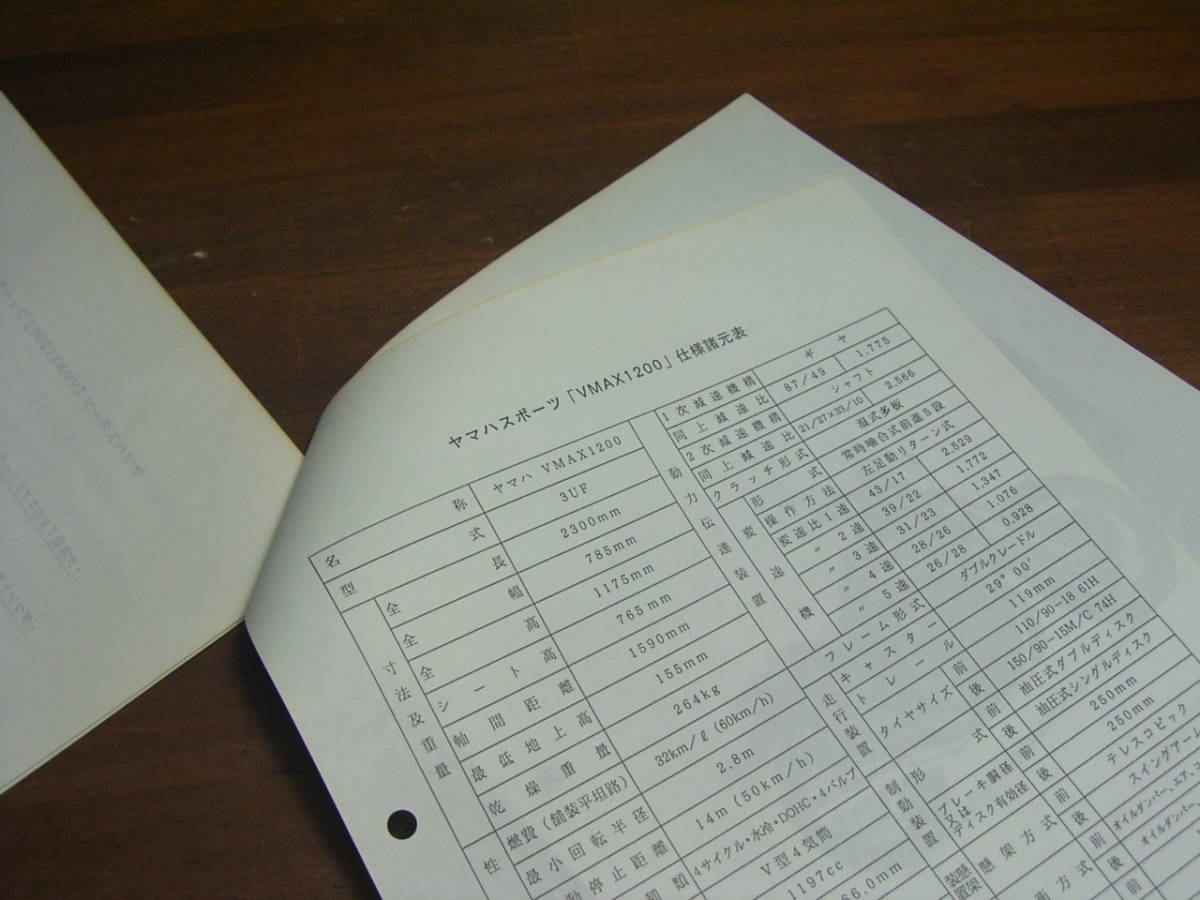 ヤマハスポーツ「VMAX1200」仕様諸元表
名称 ヤマハ VMAX1200
型式 3UF
寸法及重量
全長 2300mm
全幅 785mm
全高 1175mm
シート高 765mm
軸間距離 1590mm
最低地上高 155mm
乾燥重量 264kg
性
燃費(舗装平坦路) 32km/ℓ(60km/h)
最小回転半径 2.8m
動停止距離 14m(50km/h)
4サイクル・水冷・DOHC・4バルブ
V型4気筒
1197cc
66.0mm
動力伝達装置
1次減速機構 ギヤ
同上減速比 87/49 1.775
2次減速機構 シャフト
同上減速比 21/27×33/10 2.566
クラッチ形式 湿式多板
変速機
形式 常時噛合式前進5段
操作方法 左足動リターン式
変速比1速 43/17 2.529
〃 2速 39/22 1.772
〃 3速 31/23 1.347
〃 4速 28/26 1.076
〃 5速 26/28 0.928
フレーム形式 ダブルクレードル
走行装置
キャスター 29°00′
トレール 119mm
タイヤサイズ 前 110/90-18 61H
後 150/90-15M/C 74H
制動装置
形式 前 油圧式ダブルディスク
後 油圧式シングルディスク
ブレーキ胴径又はディスク有効径 前 250mm
後 250mm
懸架装置
懸架方式 前 テレスコピック
後 スイングアーム
衝方式 前 オイルダンパー、エア、コ
後 オイルダンパー
前